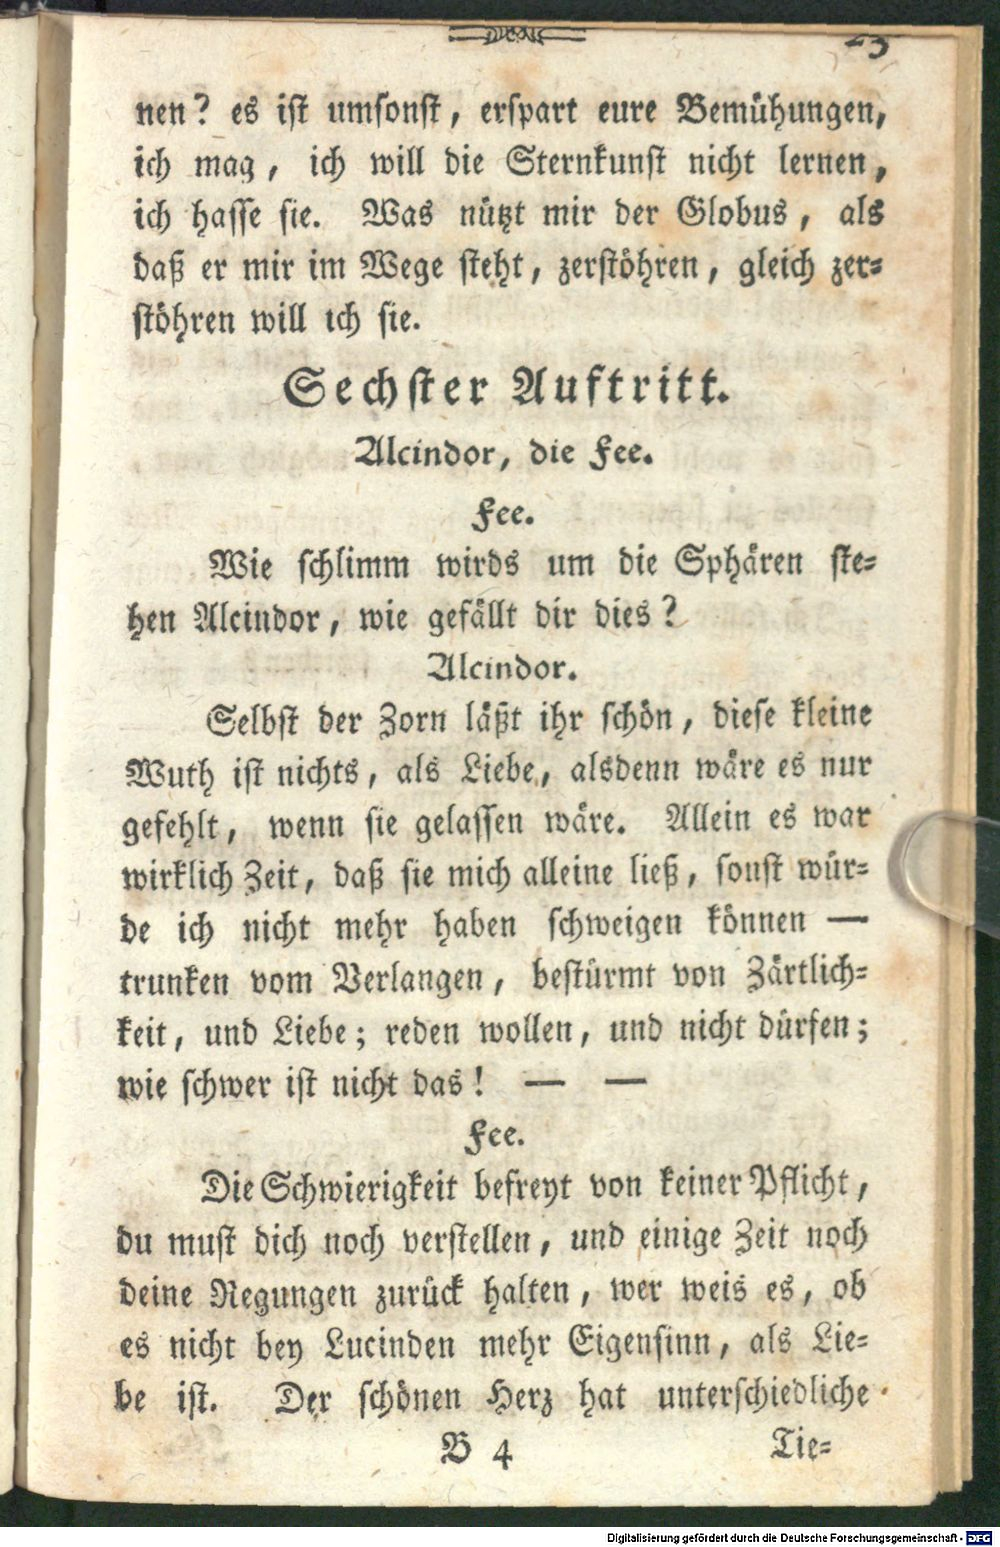 23
nen? es ist umsonst, erspart eure Bemühungen,
ich mag, ich will die Sternkunst nicht lernen,
ich hasse sie. Was nützt mir der Globus, als
daß er mir im Wege steht, zerstöhren, gleich zer-
stöhren will ich sie.
Sechster Auftritt.
Alcindor, die Fee.
Fee.
Wie schlimm wirds um die Sphären ste-
hen Alcindor, wie gefällt dir dies?
Alcindor.
Selbst der Zorn läßt ihr schön, diese kleine
Wuth ist nichts, als Liebe, alsdenn wäre es nur
gefehlt, wenn sie gelassen wäre. Allein es war
wirklich Zeit, daß sie mich alleine ließ, sonst wür-
de ich nicht mehr haben schweigen können —
trunken vom Verlangen, bestürmt von Zärtlich-
keit, und Liebe; reden wollen, und nicht dürfen;
wie schwer ist nicht das! — —
Fee.
Die Schwierigkeit befreyt von keiner Pflicht,
du must dich noch verstellen, und einige Zeit noch
deine Regungen zurück halten, wer weis es, ob
es nicht bey Lucinden mehr Eigensinn, als Lie-
be ist. Der schönen Herz hat unterschiedliche
B 4 Tie-
Digitalisierung gefördert durch die Deutsche Forschungsgemeinschaft - DFG